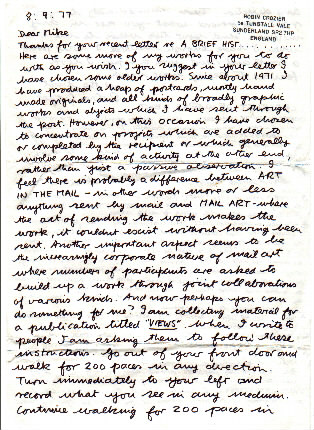 8.9.77
ROBIN CROZIER
5B TUNSTALL VALE
SUNDERLAND SR2 7HP
ENGLAND
Dear Mike
Thanks for your recent letter re A BRIEF HIST....
Here are some more of my works for you to do
with as you wish. I you suggest in your letter I
have chosen some older works. Since about 1971 I
have produced a heap of postcards, mostly hand
made originals, and all kinds of broadly graphic
works and objects which I have sent through
the post. However, on this occasion I have chosen
to concentrate on projects which are added to
or completed by the recipient or which generally
involve some kind of activity at the other end,
rather than just a passive observation. I
feel there is probably a difference between ART
IN THE MAIL - in other words more or less
anything sent by mail and MAIL ART - where
the act of sending the work makes the
work, it couldnt exist without having been
sent. Another important aspect seems to be
the increasingly corporate nature of mail art
where numbers of participants are asked to
build up a work through joint collaborations
of various kinds. And now perhaps you can
do something for me? I am collecting material for
a publication titled "VIEWS". When I write to
people I am asking them to follow these
instructions. Go out of your front door and
walk for 200 paces in any direction.
Turn immediately to your left and
record what you see in any medium.
Continue walking for 200 paces in